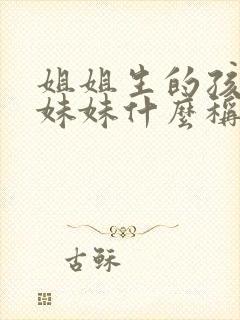 姐姐生的孩
妹妹什麼稱
古穌